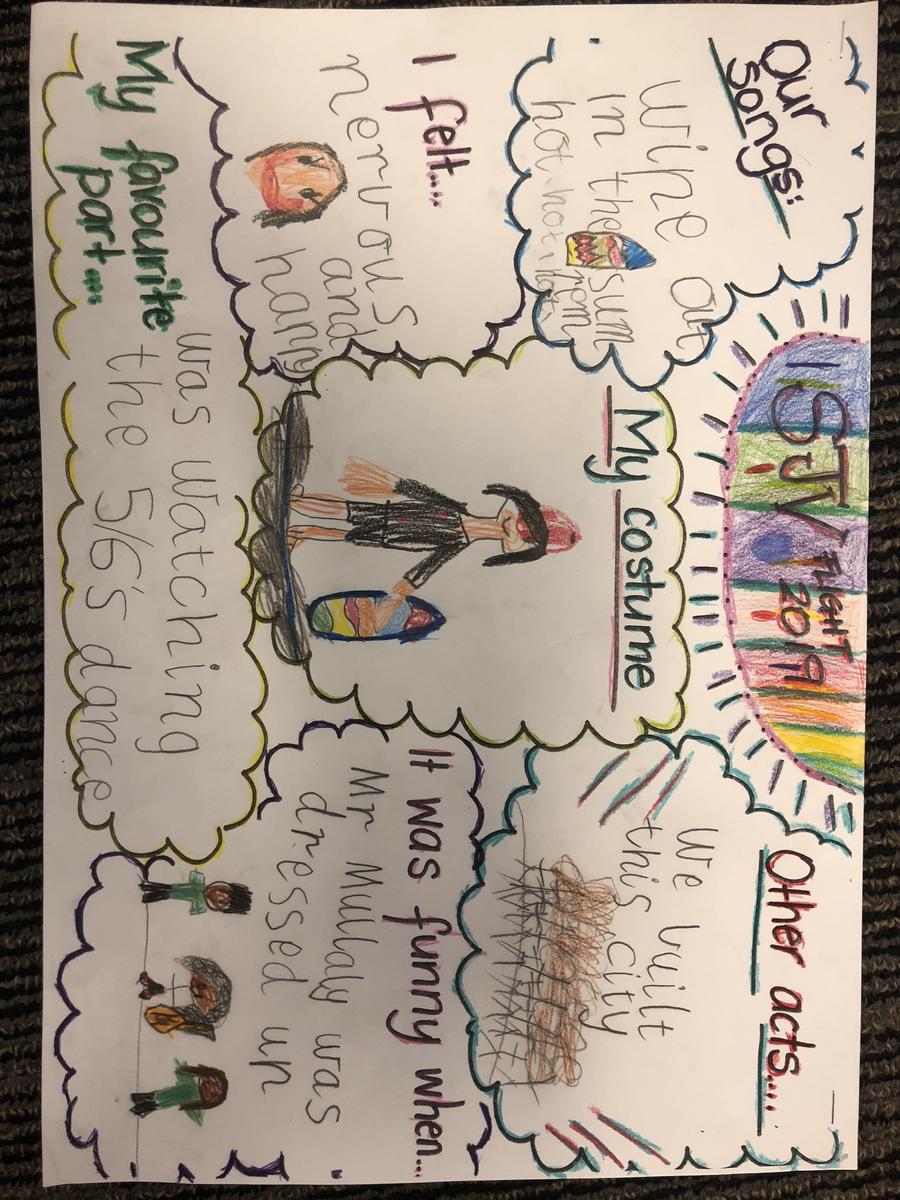 FLIGHT
2019
Our
Songs:
Wipe out
in the
hot hot hot
My costume
Other acts....
We built
this city
I felt....
nervous
and
happy
It was funny when...
Mr Mullay was
dressed up
My favourite
part....
was watching
the 5/6's dance